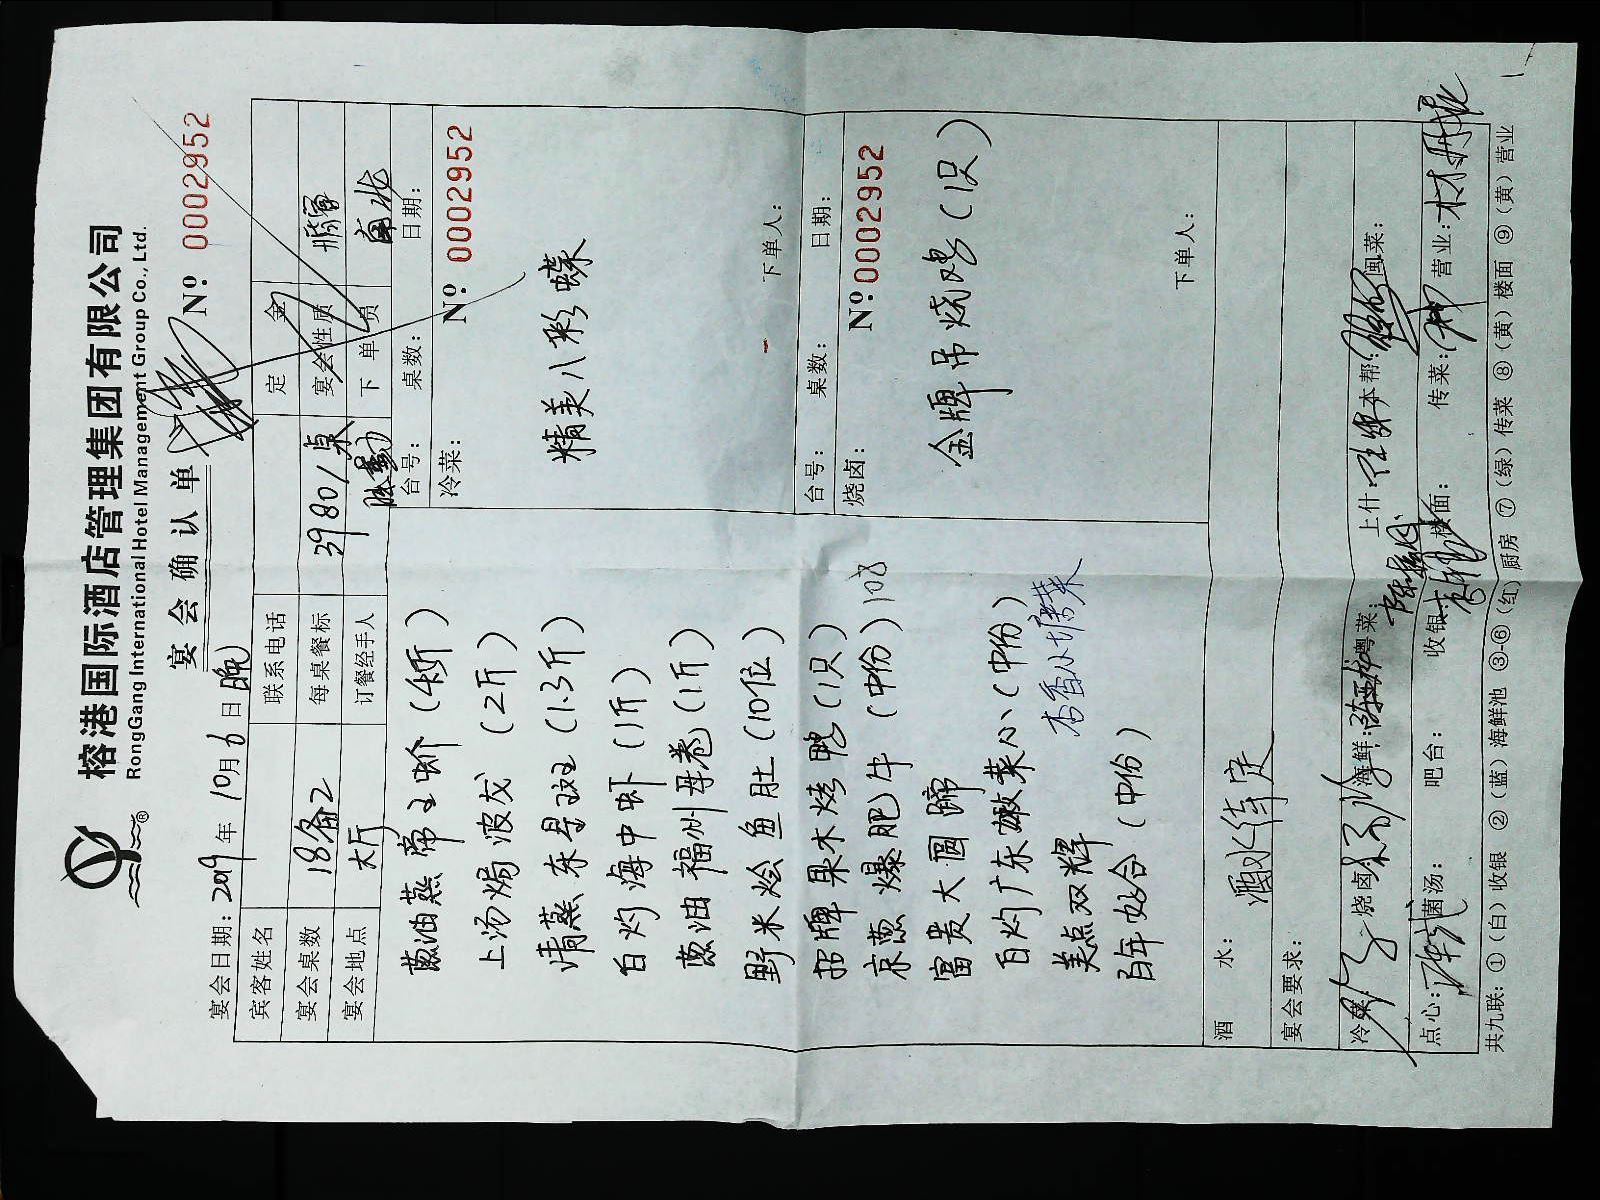 榕港国际酒店管理集团有限公司
RongGang International Hotel Management Group Co., Ltd.
宴会确认单
宴会日期：2019年10月6日晚
Nº 0002952
宾客姓名 联系电话 定金
宴会桌数 18备2 每桌餐标 3980/桌 宴会性质
宴会地点 大厅 订餐经手人 下单员
葱油蒸帝王蚧（4斤）
上汤焗波龙（2斤）
清蒸东星斑（1.3斤）
白灼海中虾（1斤）
葱油福州母卷（1斤）
野米烩鱼肚（10位）
招牌果木烤鸭（1只）
京葱爆肥牛（中份）108
富贵大圆蹄
白灼广东嫩菜心（中份）
美点双辉
百年好合（中份）
台号： 桌数： 日期：
冷菜： Nº 0002952
精美八彩蝶
下单人：
台号： 桌数： 日期：
烧卤： Nº 0002952
金牌吊烧鸡（1只）
下单人：
酒水： 酒水待定
宴会要求：
冷菜： 烧卤： 海鲜： 粤菜： 上什： 本帮： 闽菜：
点心： 菌汤： 吧台： 收银： 楼面： 传菜： 营业：
共九联：①（白）收银 ②（蓝）海鲜池 ③-⑥（红）厨房 ⑦（绿）传菜 ⑧（黄）楼面 ⑨（黄）营业